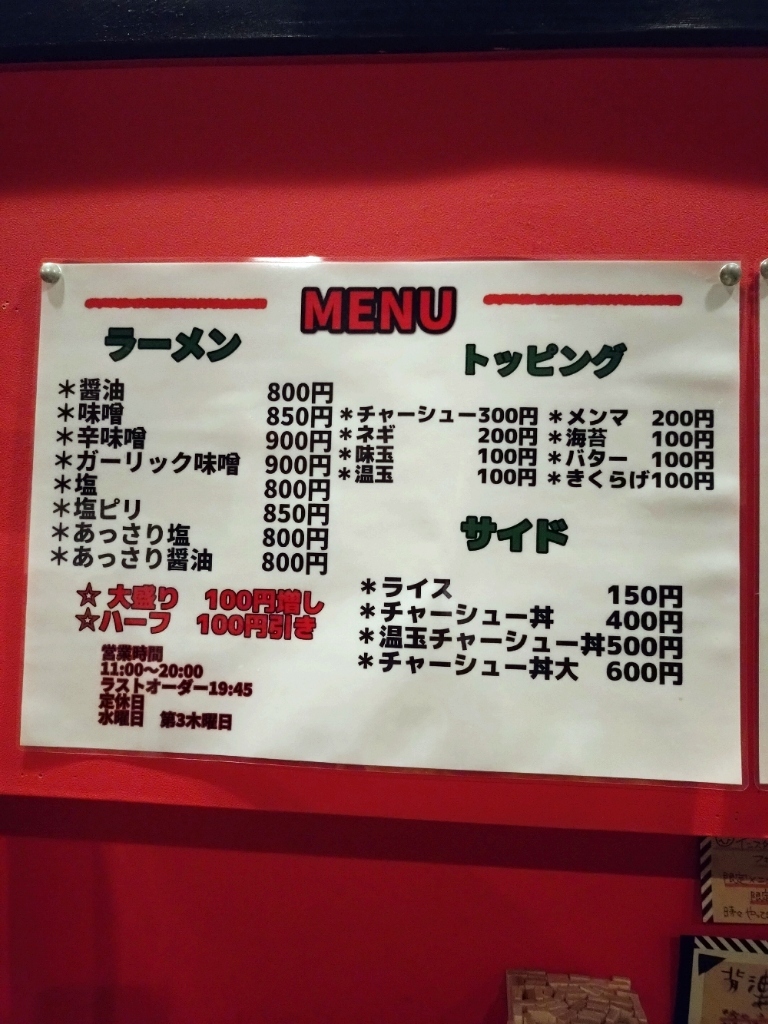 MENU
ラーメン
＊醤油 800円
＊味噌 850円
＊辛味噌 900円
＊ガーリック味噌 900円
＊塩 800円
＊塩ピリ 850円
＊あっさり塩 800円
＊あっさり醤油 800円
☆大盛り 100円増し
☆ハーフ 100円引き
営業時間
11:00〜20:00
ラストオーダー19:45
定休日
水曜日 第3木曜日
トッピング
＊チャーシュー300円 ＊メンマ 200円
＊ネギ 200円 ＊海苔 100円
＊味玉 100円 ＊バター 100円
＊温玉 100円 ＊きくらげ100円
サイド
＊ライス 150円
＊チャーシュー丼 400円
＊温玉チャーシュー丼500円
＊チャーシュー丼大 600円
背油